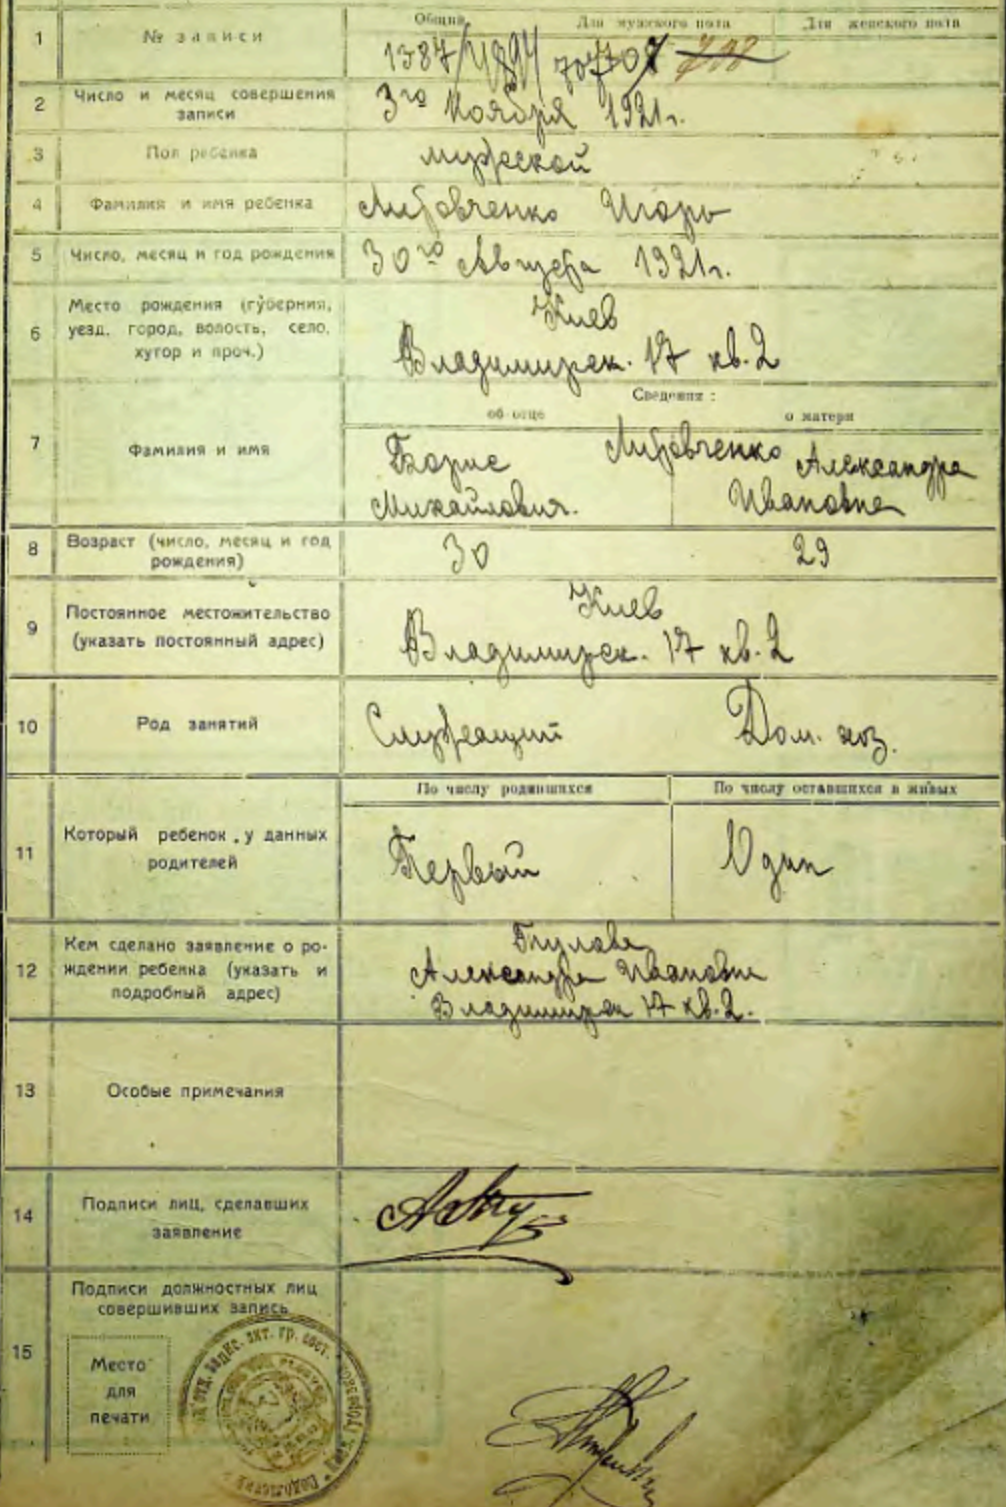 1 № записи Общий Для мужского пола Для женского пола
1387/
2 Число и месяц совершения записи 3го Ноября 1921г.
3 Пол ребенка мужеской
4 Фамилия и имя ребенка Игорь
5 Число, месяц и год рождения 30го Августа 1921г.
6 Место рождения (губерния,
уезд, город, волость, село,
хутор и проч.)
Киев
Владимирск. 17 кв. 2
Сведения:
об отце о матери
7 Фамилия и имя
Борис Александра
Михайлович. Ивановна
8 Возраст (число, месяц и год
рождения)
30 29
9 Постоянное местожительство
(указать постоянный адрес)
Киев
Владимирск. 17 кв. 2
10 Род занятий Служащий Дом. хоз.
По числу родившихся По числу оставшихся в живых
11 Который ребенок у данных
родителей
Первый Один
12 Кем сделано заявление о ро-
ждении ребенка (указать и
подробный адрес)
Александра Ивановна
Владимирск 17 кв. 2.
13 Особые примечания
14 Подписи лиц, сделавших
заявление
15 Подписи должностных лиц
совершивших запись
Место
для
печати